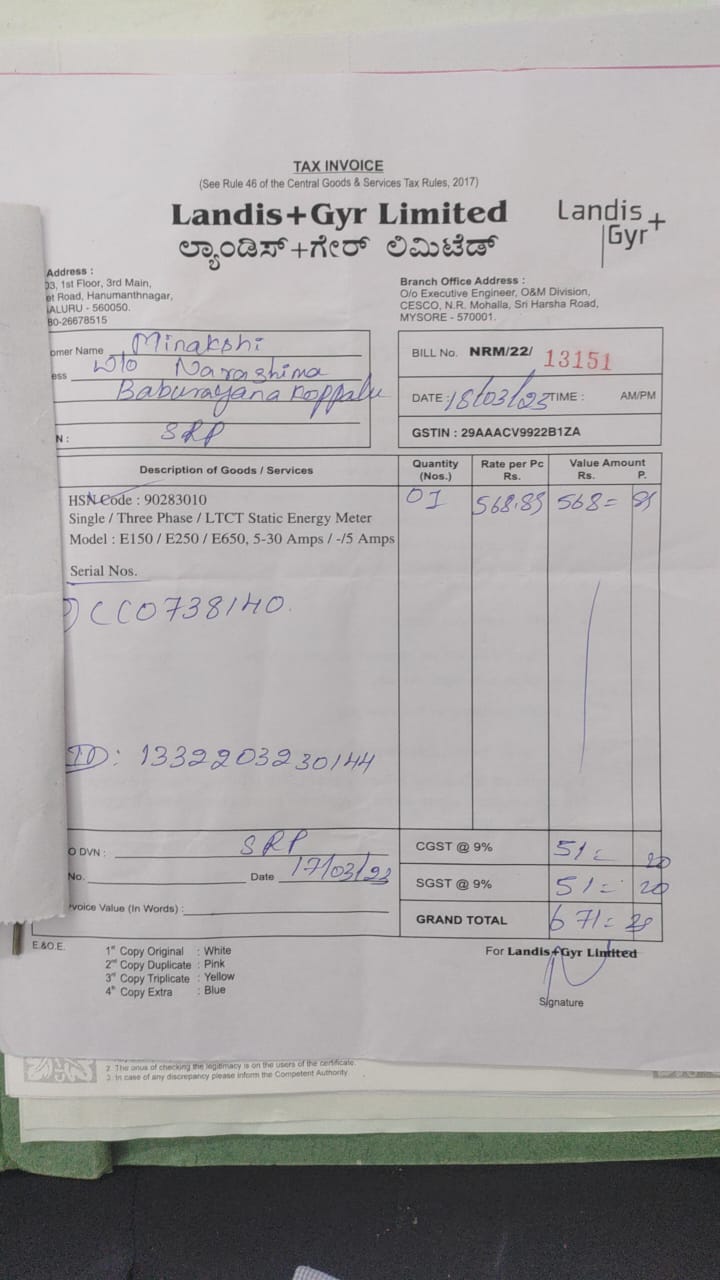 TAX INVOICE
(See Rule 46 of the Central Goods & Services Tax Rules, 2017)
Landis+Gyr Limited
ಲ್ಯಾಂಡಿಸ್+ಗೇರ್ ಲಿಮಿಟೆಡ್
Landis+
Gyr
Address :
03, 1st Floor, 3rd Main,
et Road, Hanumanthnagar,
ALURU - 560050.
80-26678515
Branch Office Address :
O/o Executive Engineer, O&M Division,
CESCO, N.R. Mohalla, Sri Harsha Road,
MYSORE - 570001.
omer Name Minakshi
ess W/o Narashima
Baburayana Koppalu
N : SRP
BILL No. NRM/22/ 13151
DATE : 18/03/23 TIME : AM/PM
GSTIN : 29AAACV9922B1ZA
Description of Goods / Services Quantity (Nos.) Rate per Pc Rs. Value Amount Rs. P.
HSN Code : 90283010 01 568.85 568=
Single / Three Phase / LTCT Static Energy Meter
Model : E150 / E250 / E650, 5-30 Amps / -/5 Amps
Serial Nos.
CC0738140.
ID: 1332203230144
O DVN : SRP
No. Date 17/03/23
voice Value (In Words) :
CGST @ 9% 51= 20
SGST @ 9% 51= 20
GRAND TOTAL 671=
E.&O.E.
1st Copy Original : White
2nd Copy Duplicate : Pink
3rd Copy Triplicate : Yellow
4th Copy Extra : Blue
For Landis+Gyr Limited
Signature
2. The onus of checking the legitimacy is on the users of the certificate.
3. In case of any discrepancy please inform the Competent Authority.